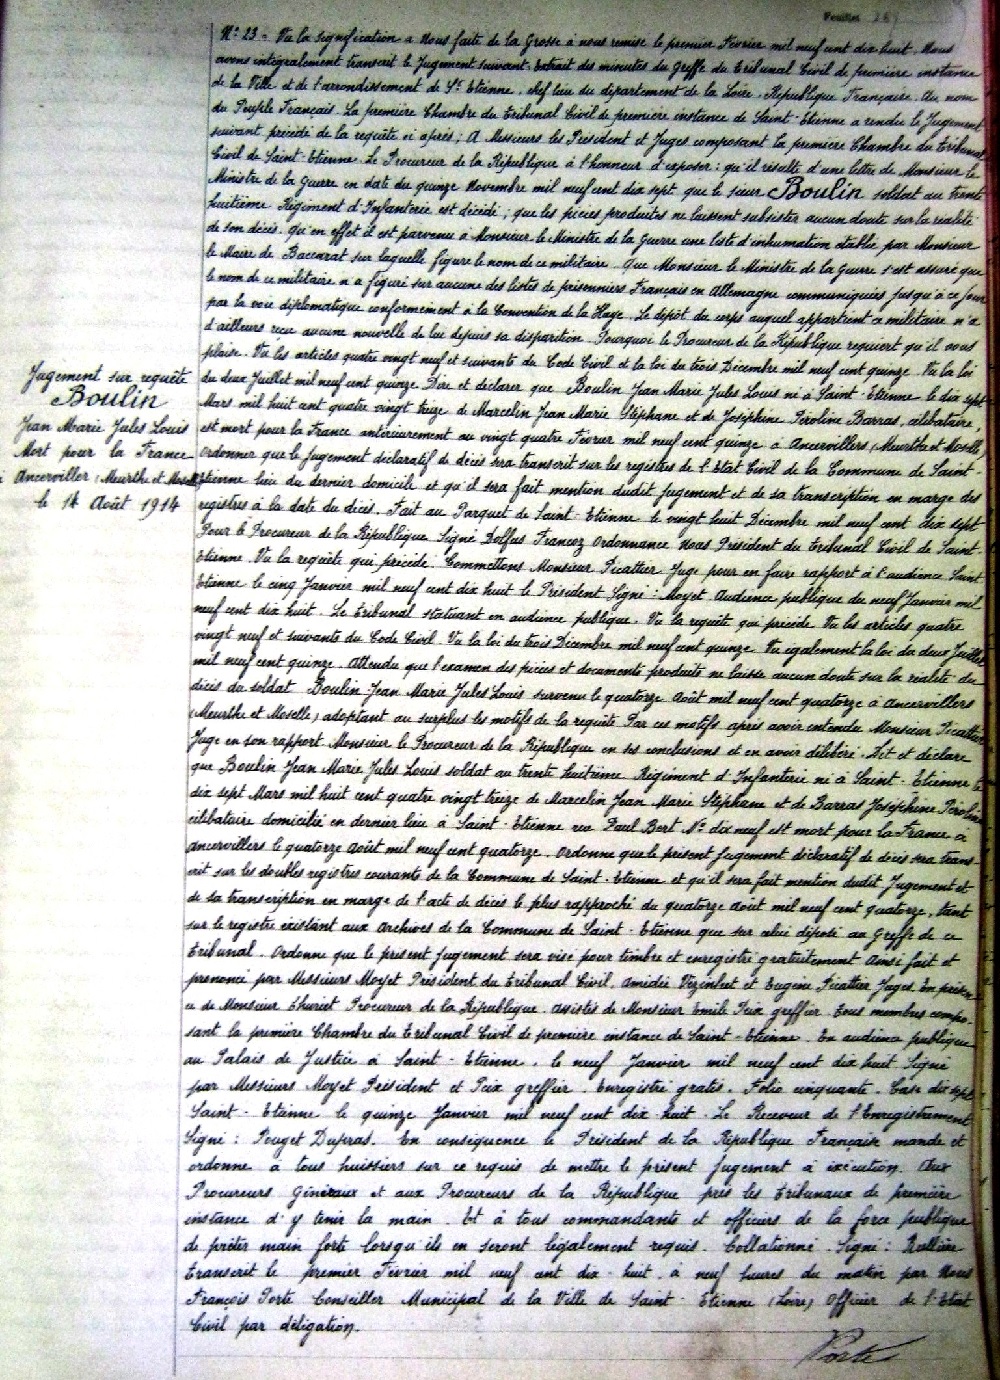 Feuillet
N: 23 - Vu la signification a Nous faite de la Grosse à nous remise le premier Février mil neuf cent dix huit. Nous
avons intégralement transcrit le Jugement suivant. Extrait des minutes du Greffe du Tribunal Civil de première instance
de la Ville et de l'arrondissement de St Etienne, chef lieu du département de la Loire. République Française. Au nom
du Peuple Français. La première Chambre du Tribunal Civil de première instance de Saint-Etienne a rendu le Jugement
suivant précédé de la requête ci après; A Messieurs les Président et Juges composant la première Chambre du Tribunal
Civil de Saint-Etienne. Le Procureur de la République à l'honneur d'exposer: qu'il résulte d'une lettre de Monsieur le
Ministre de la Guerre en date du quinze Novembre mil neuf cent dix sept que le sieur Boulin soldat au trente
huitième Régiment d'Infanterie est décédé; que les pièces produites ne laissent subsister aucun doute sur la réalité
de son décès. Qu'en effet il est parvenu à Monsieur le Ministre de la Guerre une liste d'inhumation établie par Monsieur
le Maire de Baccarat sur laquelle figure le nom de ce militaire. Que Monsieur le Ministre de la Guerre s'est assuré que
le nom de ce militaire n'a figuré sur aucune des listes de prisonniers Français en Allemagne communiquées jusqu'à ce jour
par la voie diplomatique conformément à la Convention de la Haye. Le dépôt du corps auquel appartient ce militaire n'a
d'ailleurs reçu aucune nouvelle de lui depuis sa disparition. Pourquoi le Procureur de la République requiert qu'il vous
plaise. Vu les articles quatre vingt neuf et suivants du Code Civil et la loi du trois Décembre mil neuf cent quinze. Vu la loi
du deux Juillet mil neuf cent quinze. Dire et déclarer que Boulin Jean Marie Jules Louis né à Saint-Etienne le dix sept
Mars mil huit cent quatre vingt treize de Marcelin Jean Marie Stéphane et de Joséphine Péroline Barras, célibataire,
est mort pour la France antérieurement au vingt quatre Février mil neuf cent quinze à Ancervillers (Meurthe et Moselle)
Ordonner que le Jugement déclaratif de décès sera transcrit sur les registres de l'Etat Civil de la Commune de Saint-
Etienne lieu du dernier domicile et qu'il sera fait mention dudit Jugement et de sa transcription en marge des
registres à la date du décès. Fait au Parquet de Saint-Etienne le vingt huit Décembre mil neuf cent dix sept
Pour le Procureur de la République. Signé Dolfus Francoz Ordonnance Nous Président du Tribunal Civil de Saint-
Etienne. Vu la requête qui précède. Commettons Monsieur Picattier Juge pour en faire rapport à l'audience Saint
Etienne le cinq Janvier mil neuf cent dix huit le Président Signé: Moyet. Audience publique du neuf Janvier mil
neuf cent dix huit. Le Tribunal statuant en audience publique. Vu la requête qui précède. Vu les articles quatre
vingt neuf et suivants du Code Civil. Vu la loi du trois Décembre mil neuf cent quinze. Vu également la loi du deux Juillet
mil neuf cent quinze. Attendu que l'examen des pièces et documents produits ne laisse aucun doute sur la réalité du
décès du soldat Boulin Jean Marie Jules Louis survenu le quatorze Août mil neuf cent quatorze à Ancervillers
(Meurthe et Moselle) adoptant au surplus les motifs de la requête Par ces motifs après avoir entendu Monsieur Picattier
Juge en son rapport Monsieur le Procureur de la République en ses conclusions et en avoir délibéré. Dit et déclare
que Boulin Jean Marie Jules Louis soldat au trente huitième Régiment d'Infanterie né à Saint-Etienne le
dix sept Mars mil huit cent quatre vingt treize de Marcelin Jean Marie Stéphane et de Barras Joséphine Péroline
célibataire domicilié en dernier lieu à Saint-Etienne rue Paul Bert No dix neuf est mort pour la France à
Ancervillers le quatorze Août mil neuf cent quatorze. Ordonne que le présent Jugement déclaratif de décès sera trans-
crit sur les doubles registres courants de la Commune de Saint-Etienne et qu'il sera fait mention dudit Jugement et
de sa transcription en marge de l'acte de décès le plus rapproché du quatorze Août mil neuf cent quatorze, tant
sur le registre existant aux Archives de la Commune de Saint-Etienne que sur celui déposé au Greffe de ce
Tribunal. Ordonne que le présent Jugement sera visé pour timbre et enregistré gratuitement Ainsi fait et
prononcé par Messieurs Moyet Président du Tribunal Civil, Amédée Vézinhet et Eugène Picattier Juges. En présen-
ce de Monsieur Thuriet Procureur de la République. Assistés de Monsieur Emile Peix greffier. Tous membres compo-
sant la première Chambre du Tribunal Civil de première instance de Saint-Etienne. En audience publique
au Palais de Justice à Saint-Etienne, le neuf Janvier mil neuf cent dix huit Signé
par Messieurs Moyet Président et Peix greffier. Enregistré gratis. Folio cinquante. Case dix sept
Saint-Etienne le quinze Janvier mil neuf cent dix huit. Le Receveur de l'Enregistrement
Signé: Pouget Dupras. En conséquence le Président de la République Française mande et
ordonne à tous huissiers sur ce requis de mettre le présent Jugement à exécution. Aux
Procureurs Généraux et aux Procureurs de la République près les Tribunaux de première
instance d'y tenir la main. Et à tous commandants et officiers de la force publique
de prêter main forte lorsqu'ils en seront légalement requis. Collationné. Signé: Rullière
Transcrit le premier Février mil neuf cent dix-huit, à neuf heures du matin par Nous
François Porte Conseiller Municipal de la Ville de Saint-Etienne (Loire) Officier de l'Etat
Civil par délégation.
Porte
Jugement sur requête
Boulin
Jean Marie Jules Louis
Mort pour la France
à Ancerviller (Meurthe et Moselle)
le 14 Août 1914